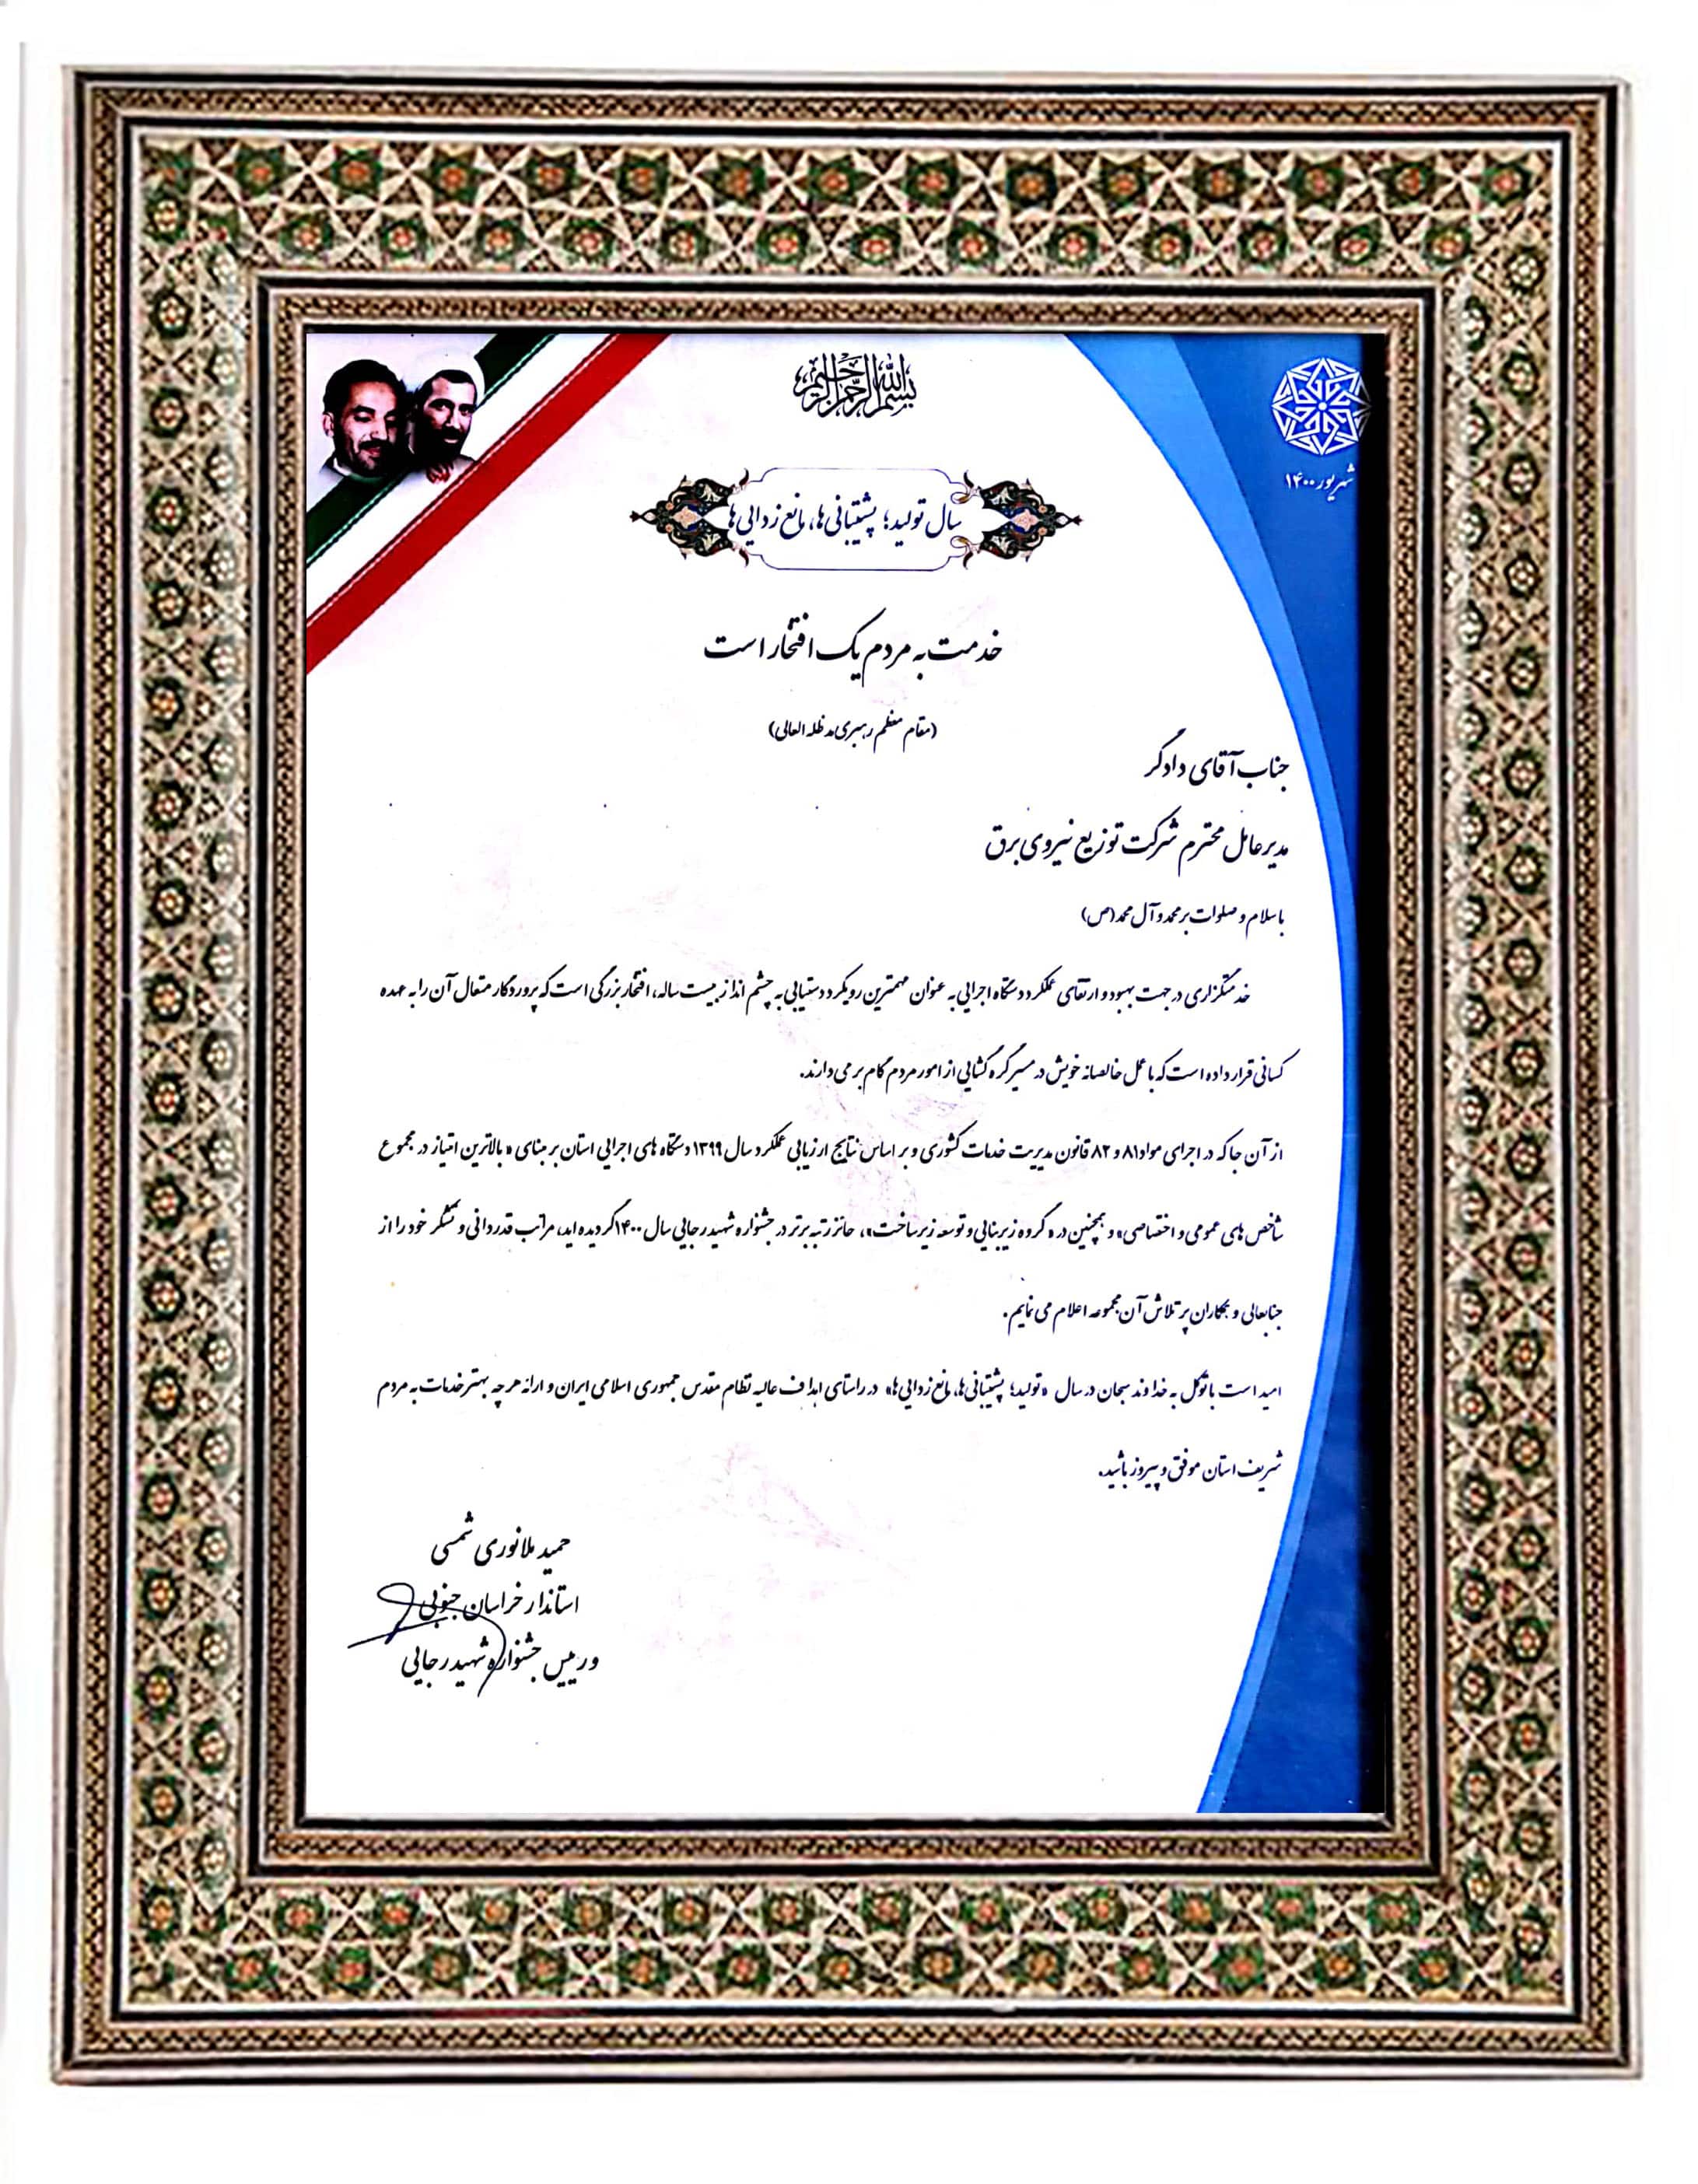 بسم الله الرحمن الرحیم
شهریور ۱۴۰۰
سال تولید؛ پشتیبانی‌ها، مانع زدایی‌ها
خدمت به مردم یک افتخار است
(مقام معظم رهبری مدظله العالی)
جناب آقای دادگر
مدیرعامل محترم شرکت توزیع نیروی برق
با سلام و صلوات بر محمد و آل محمد (ص)
خدمتگزاری در جهت بهبود و ارتقای عملکرد دستگاه اجرایی به عنوان مهمترین رویکرد دستیابی به چشم انداز بیست ساله، افتخار بزرگی است که پروردگار متعال آن را به عهده
کسانی قرار داده است که با عمل خالصانه خویش در مسیر گره گشایی از امور مردم گام بر می دارند.
از آن جا که در اجرای مواد ۸۱ و ۸۲ قانون مدیریت خدمات کشوری و بر اساس نتایج ارزیابی عملکرد سال ۱۳۹۹ دستگاه های اجرایی استان بر مبنای « بالاترین امتیاز در مجموع
شاخص های عمومی و اختصاصی» و همچنین در « گروه زیربنایی و توسعه زیرساخت»، حائز رتبه برتر در جشنواره شهید رجایی سال ۱۴۰۰ گردیده اید، مراتب قدردانی و تشکر خود را از
جنابعالی و همکاران پر تلاش آن مجموعه اعلام می نمایم.
امید است با توکل به خداوند سبحان در سال «تولید؛ پشتیبانی‌ها، مانع زدایی‌ها» در راستای اهداف عالیه نظام مقدس جمهوری اسلامی ایران و ارائه هر چه بهتر خدمات به مردم
شریف استان موفق و پیروز باشید.
حمید ملانوری شمسی
استاندار خراسان جنوبی
و رییس جشنواره شهید رجایی